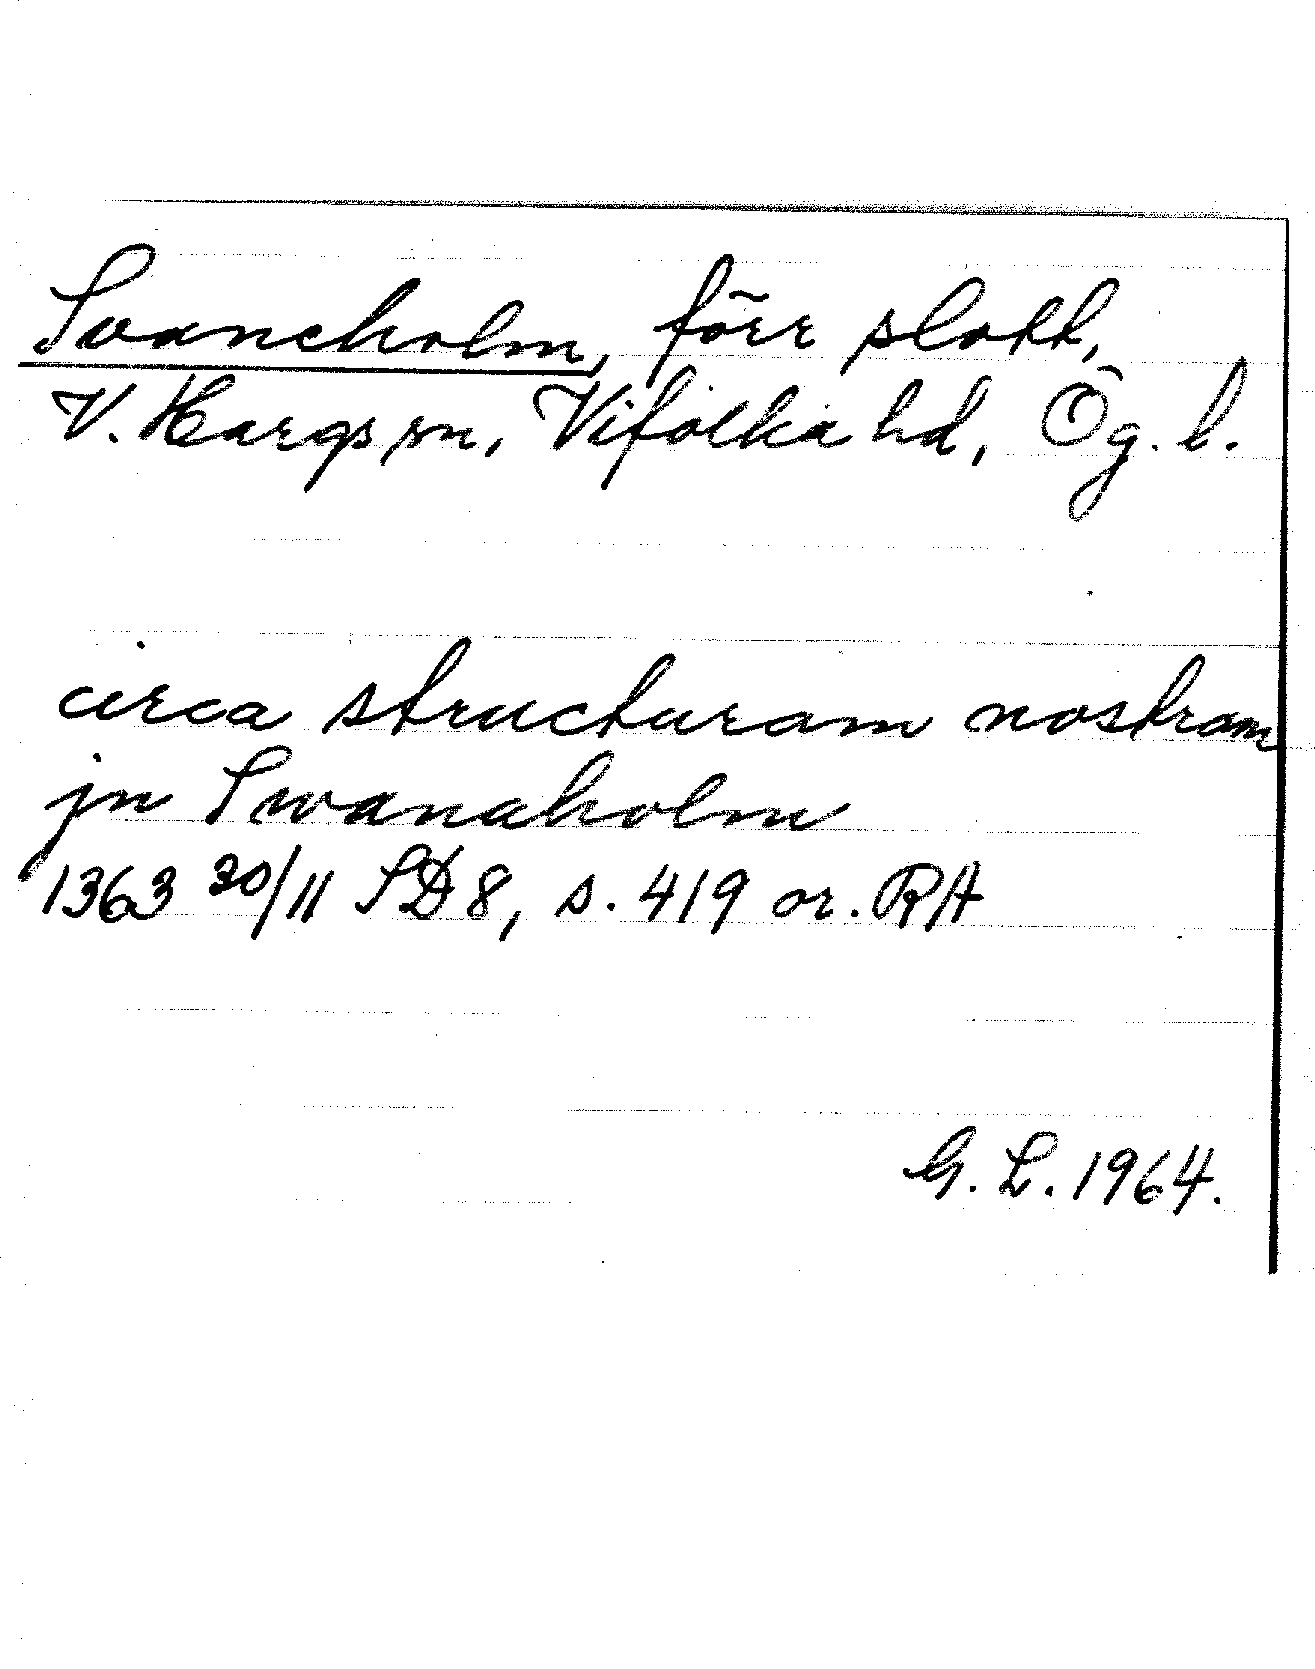 Svaneholm, förr slott,
V. Hargs sn, Vifolka hd, Ög. l.
circa structuram nostram
jn Swanaholm
1363 30/11 SD 8, s. 419 or. RA
G. L. 1964.